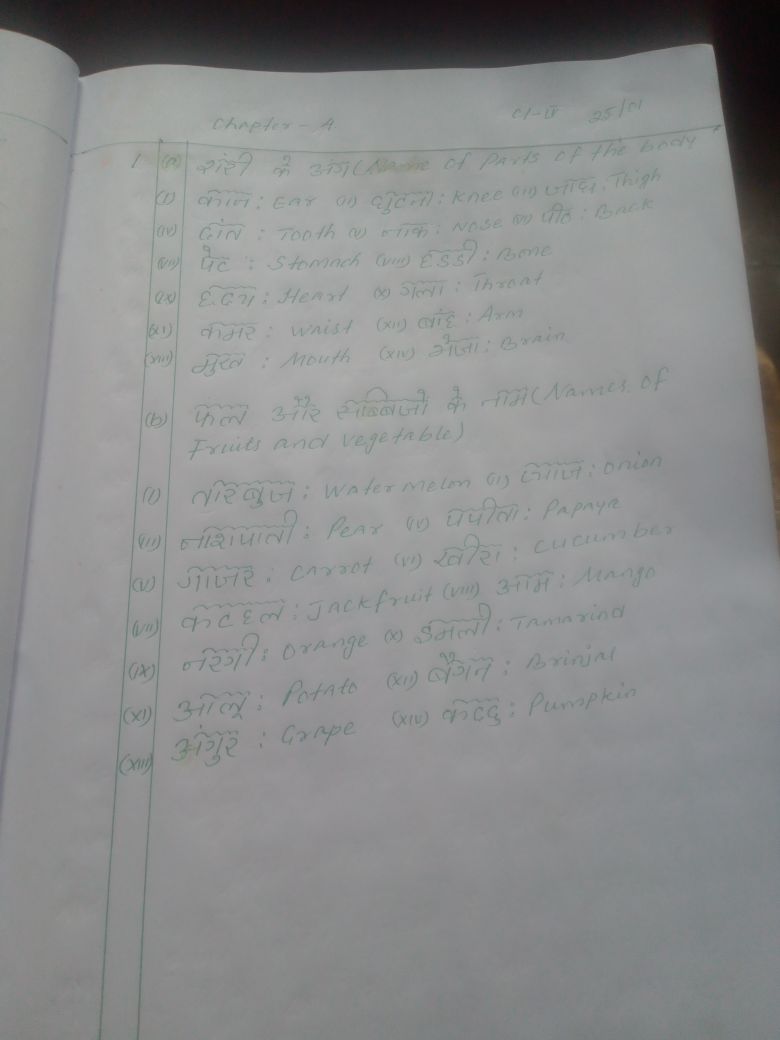 Chapter - 4 Cl-IV 25/01
1 (a) शरीरी के अंग (Name of Parts of the body
(i) कान : Ear (ii) घुटना : Knee (iii) जांघ : Thigh
(iv) दांत : Tooth (v) नाक : Nose (vi) पीठ : Back
(vii) पेट : Stomach (viii) हड्डी : Bone
(ix) हृदय : Heart (x) गला : Throat
(xi) कमर : Waist (xii) बांह : Arm
(xiii) मुख : Mouth (xiv) भेजा : Brain
(b) फल और सब्जियों के नाम (Names of
Fruits and vegetable)
(i) तरबुज : Water melon (ii) प्याज : Onion
(iii) नाशपाती : Pear (iv) पपीता : Papaya
(v) गाजर : Carrot (vi) खीरा : Cucumber
(vii) कटहल : Jackfruit (viii) आम : Mango
(ix) नरंगी : Orange (x) ईमली : Tamarind
(xi) आलू : Potato (xii) बैंगन : Brinjal
(xiii) अंगुर : Grape (xiv) कद्दु : Pumpkin